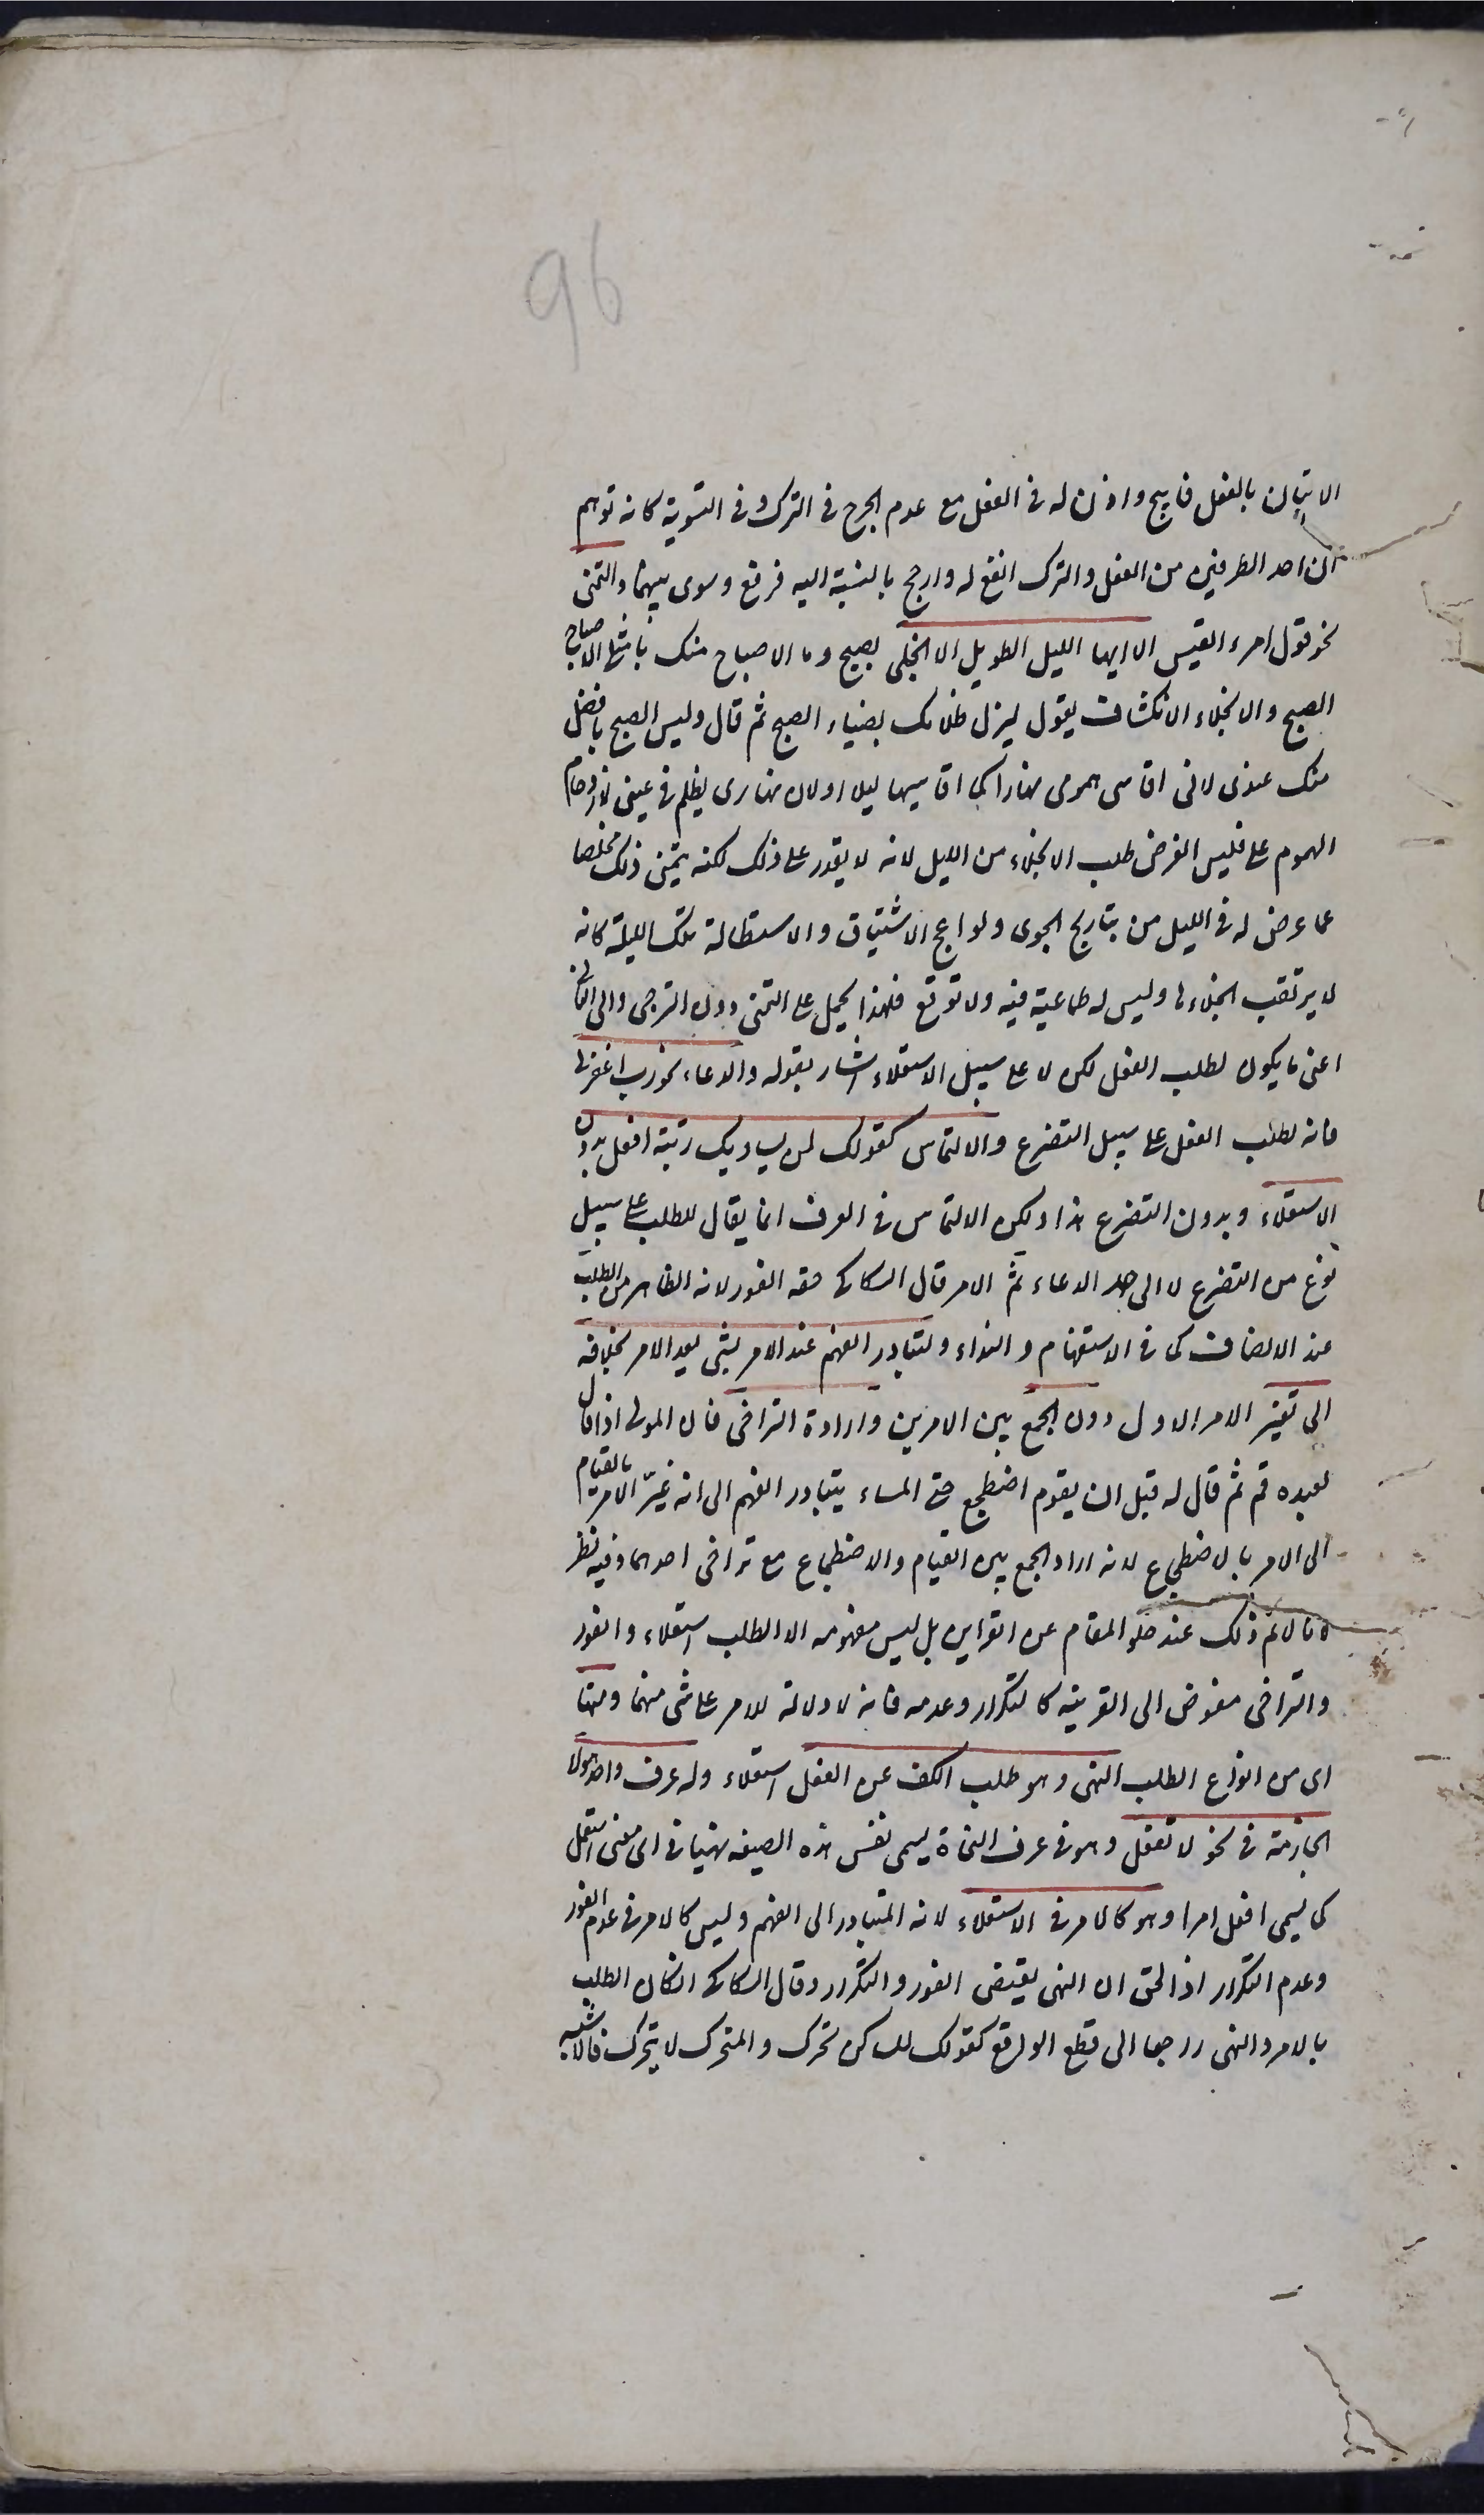 96
الاتيان بالفعل فابيح واذن له فى الفعل مع عدم الحرج فى الترك وفى التسوية كانه توهم
ان احد الطرفين من الفعل والترك انفع له وارجح بالنسبة اليه فرفع وسوى بينهما والتمنى
نحو قول امرء القيس الا ايها الليل الطويل الا انجلى بصبح وما الاصباح منك بامثل الاصباح
الصبح والانجلاء الانكشاف يقول ليزل ظلامك بضياء الصبح ثم قال وليس الصبح بافضل
منك عندى لانى اقاسى همومى نهارا كما اقاسيها ليلا او لان نهارى يظلم فى عينى لازدحام
الهموم على فليس الغرض طلب الانجلاء من الليل لانه لا يقدر على ذلك لكنه يتمنى ذلك تخلصا
عما عرض له فى الليل من تباريح الجوى ولواعج الاشتياق والاستطالة تلك الليلة كانه
لا يرتقب انجلاءها وليس له طماعية فيه ولا توقع فلهذا يحمل على التمنى دون الترجى والى الثانى
اعنى ما يكون لطلب الفعل لكن لا على سبيل الاستعلاء اشار بقوله والدعاء نحو رب اغفر لى
فانه لطلب الفعل على سبيل التضرع والالتماس كقولك لمن يساويك رتبة افعل بدون
الاستعلاء وبدون التضرع هذا ولكن الالتماس فى العرف انما يقال للطلب على سبيل
نوع من التضرع لا الى حد الدعاء ثم الامر قال السكاكى حقه الفور لانه الظاهر من الطلب
عند الانصاف كما فى الاستفهام والنداء ولتبادر الفهم عند الامر بشئ بعد الامر بخلافه
الى تغيير الامر الاول دون الجمع بين الامرين وارادة التراخى فان المولى اذا قال
لعبده قم ثم قال له قبل ان يقوم اضطجع حتى المساء يتبادر الفهم الى انه غيّر الامر بالقيام
الى الامر بالاضطجاع لا انه اراد الجمع بين القيام والاضطجاع مع تراخى احدهما وفيه نظر
لانا لا نم ذلك عند خلو المقام عن القراين بل ليس مفهومه الا الطلب استعلاء والفور
والتراخى مفوض الى القرينة كالتكرار وعدمه فانه لا دلالة للامر على شئ منهما ومنها
اى من انواع الطلب النهى وهو طلب الكف عن الفعل استعلاء وله حرف واحد وهو لا
الجازمة فى نحو لا تفعل وهو فى عرف النحاة يسمى نفس هذه الصيغه نهيا فى اى معنى استعمل
كما يسمى افعل امرا وهو كالامر فى الاستعلاء لانه المتبادر الى الفهم وليس كالامر فى عدم الفور
وعدم التكرار اذ الحق ان النهى يقتضى الفور والتكرار وقال السكاكى ان كان الطلب
بالامر والنهى راجعا الى قطع الواقع كقولك للساكن تحرك والمتحرك لا يتحرك فالاشبه